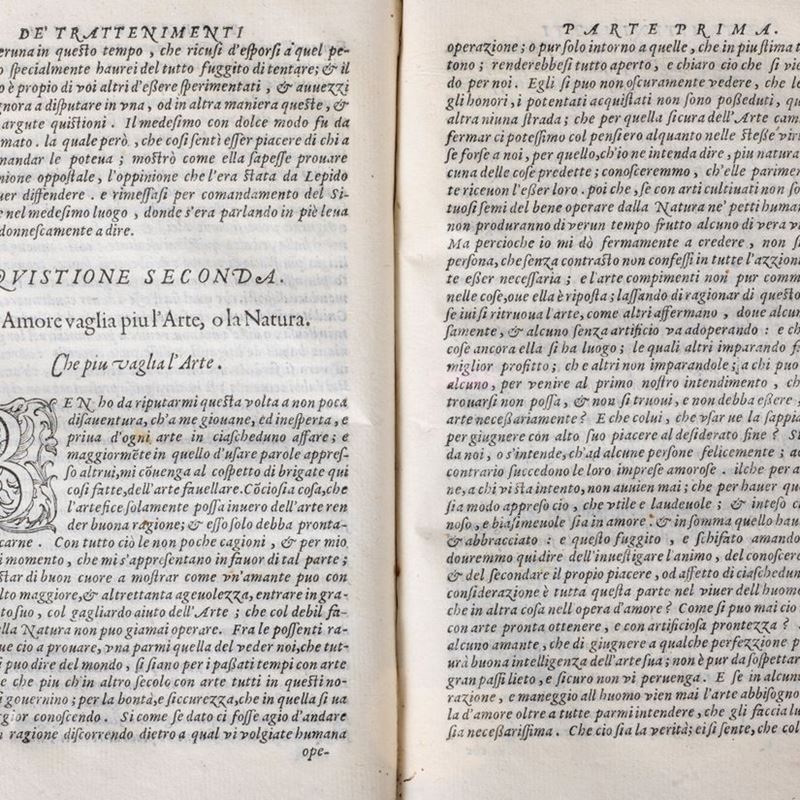 DE' TRATTENIMENTI
eruna in questo tempo, che ricusi d'esporsi a quel pe-
specialmente haurei del tutto fuggito di tentare; & il
è propio di voi altri d'eßere sperimentati, & auuezzi
gnora a disputare in vna, od in altra maniera queste, &
argute quistioni. Il medesimo con dolce modo fu da
mato. la quale però, che così sentì esser piacere di chi a
mandar le poteua; mostrò come ella sapesse prouare
nione oppostale, l'oppinione che l'era stata da Lepido
uer diffendere. e rimessasi per comandamento del Si-
e nel medesimo luogo, donde s'era parlando in piè leua
donnescamente a dire.
QVISTIONE SECONDA.
Amore vaglia piu l'Arte, o la Natura.
Che piu vaglia l'Arte.
BEN ho da riputarmi questa volta a non poca
disauentura, ch'a me giouane, ed inesperta, e
priua d'ogni arte in ciascheduno affare; e
maggiormēte in quello d'usare parole appres-
so altrui, mi cōuenga al cospetto di brigate qui
così fatte, dell'arte fauellare. Cōciosia cosa, che
l'artefice solamente possa in uero dell'arte ren
der buona ragione; & esso solo debba pronta-
carne. Con tutto ciò le non poche cagioni, & per mio
i momento, che mi s'appresentano in fauor di tal parte;
star di buon cuore a mostrar come vn'amante puo con
lto maggiore, & altrettanta ageuolezza, entrare in gra-
to suo, col gagliardo aiuto dell'Arte; che col debil fa-
lla Natura non puo giamai operare. Fra le possenti ra-
ue cio a prouare, vna parmi quella del veder noi, che tut-
i puo dire del mondo, si siano per i paßati tempi con arte
e che piu ch'in altro secolo con arte tutti in questi no-
i gouernino; per la bontà, e siccurezza, che in quella si ua
ggior conoscendo. Si come se dato ci fosse agio d'andare
ragione discorrendo dietro a qual vi volgiate humana
ope-
PARTE PRIMA.
operazione; o pur solo intorno a quelle, che in piu stima
tono; renderebbesi tutto aperto, e chiaro cio che si vie
do per noi. Egli si puo non oscuramente vedere, che le
gli honori, i potentati acquistati non sono poßeduti, qu
altra niuna strada; che per quella sicura dell'Arte cam
fermar ci potessimo col pensiero alquanto nelle steße vir
se forse a noi, per quello, ch'io ne intenda dire, piu natura
cuna delle cose predette; conosceremmo, ch'elle parimen
te riceuon l'eßer loro. poi che, se con arti cultiuati non so
tuosi semi del bene operare dalla Natura ne' petti human
non produranno di verun tempo frutto alcuno di vera vi
Ma percioche io mi dò fermamente a credere, non s
persona, che senza contrasto non confessi in tutte l'azzioni
te eßer necessaria; e l'arte compimenti non pur comm
nelle cose, oue ella è riposta; lassando di ragionar di questo
se iui si ritruoua l'arte, come altri affermano, doue alcun
samente, & alcuno senza artificio va adoperando: e ch
cose ancora ella si ha luogo; le quali altri imparando f
miglior profitto; che altri non imparandole; a chi puo
alcuno, per venire al primo nostro intendimento, ch
trouarsi non possa, & non si truoui, e non debba eßere
arte neceßariamente? E che colui, che vsar ue la sappia
per giugnere con alto suo piacere al desiderato fine? S
da noi, o s'intende, ch'ad alcune persone felicemente; ad
contrario succedono le loro imprese amorose. ilche per a
ne, a chi vi sta intento, non auuien mai; che per hauer qu
sia modo appreso cio, che vtile e laudeuole; & inteso ci
noso, e biasimeuole sia in amore: & in somma quello hau
& abbracciato: e questo fuggito, e schifato amando
douremmo qui dire dell'inuestigare l'animo, del conoscere
& del secondare il propio piacere, od affetto di ciaschedun
considerazione è tutta questa parte nel viuer dell'huome
che in altra cosa nell'opera d'amore? Come si puo mai cio
con arte pronta ottenere, e con artificiosa prontezza?
alcuno amante, che di giugnere a qualche perfezzione p
urà buona intelligenza dell'arte sua; non è pur da sospettar
gran passi lieto, e sicuro non vi peruenga. E se in alcun
razione, e maneggio all huomo vien mai l'arte abbisogno
la d'amore oltre a tutte parmi intendere, che gli faccia lu
sia neceßarissima. Che cio sia la verità; ei si sente, che col